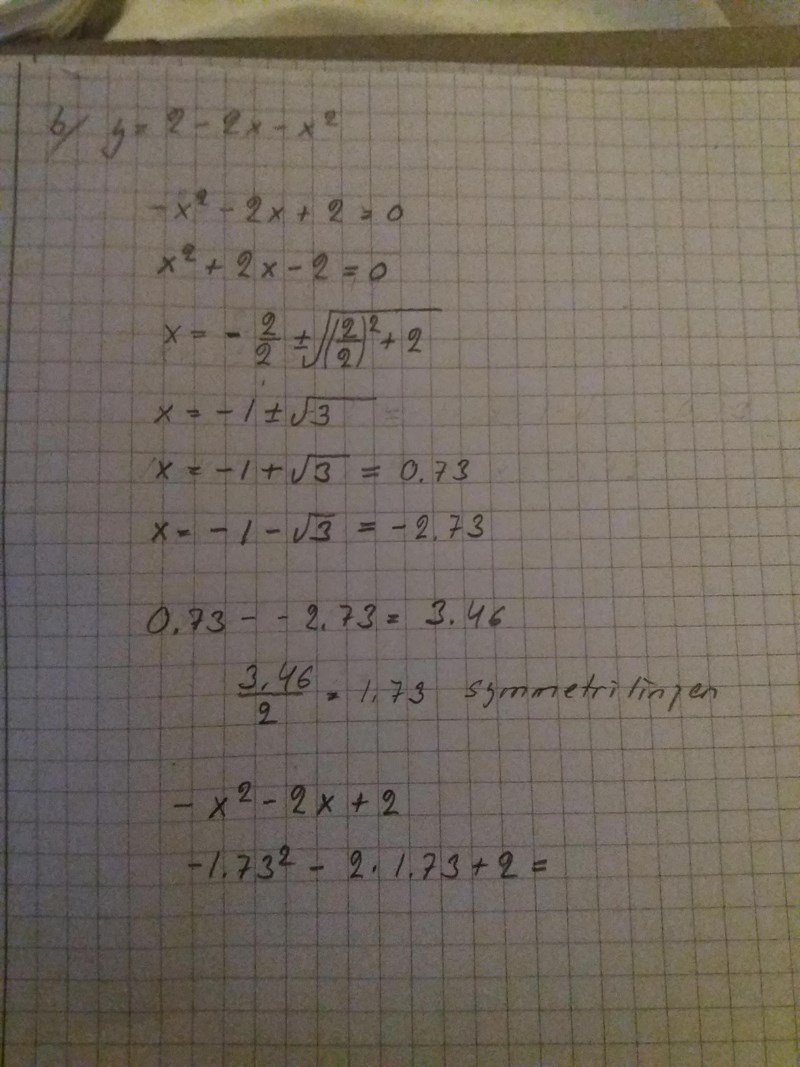 b/ y = 2 - 2x - x²
-x² - 2x + 2 = 0
x² + 2x - 2 = 0
x = - 2/2 ± √((2/2)² + 2)
x = -1 ± √3
x = -1 + √3 = 0.73
x = -1 - √3 = -2.73
0.73 - - 2.73 = 3.46
3.46/2 = 1.73 symmetrilinjen
- x² - 2x + 2
-1.73² - 2 · 1.73 + 2 =